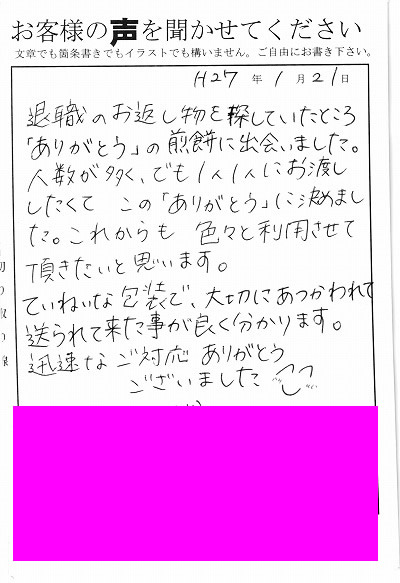 お客様の声を聞かせてください
文章でも箇条書きでもイラストでも構いません。ご自由にお書き下さい。
H27年1月21日
退職のお返し物を探していたところ
「ありがとう」の煎餅に出会いました。
人数が多く、でも1人1人にお渡し
したくて この「ありがとう」に決めまし
た。これからも 色々と利用させて
頂きたいと思います。
ていねいな包装で、大切にあつかわれて
送られて来た事が良く分かります。
迅速なご対応 ありがとう
ございました